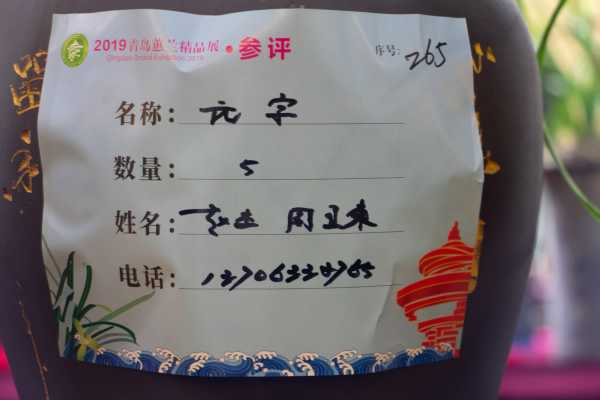 2019青岛蕙兰精品展·参评 序号: 265
Qingdao Grand Exhibition 2019
名称: 元字
数量: 5
姓名: 周卫东
电话: 13706334765